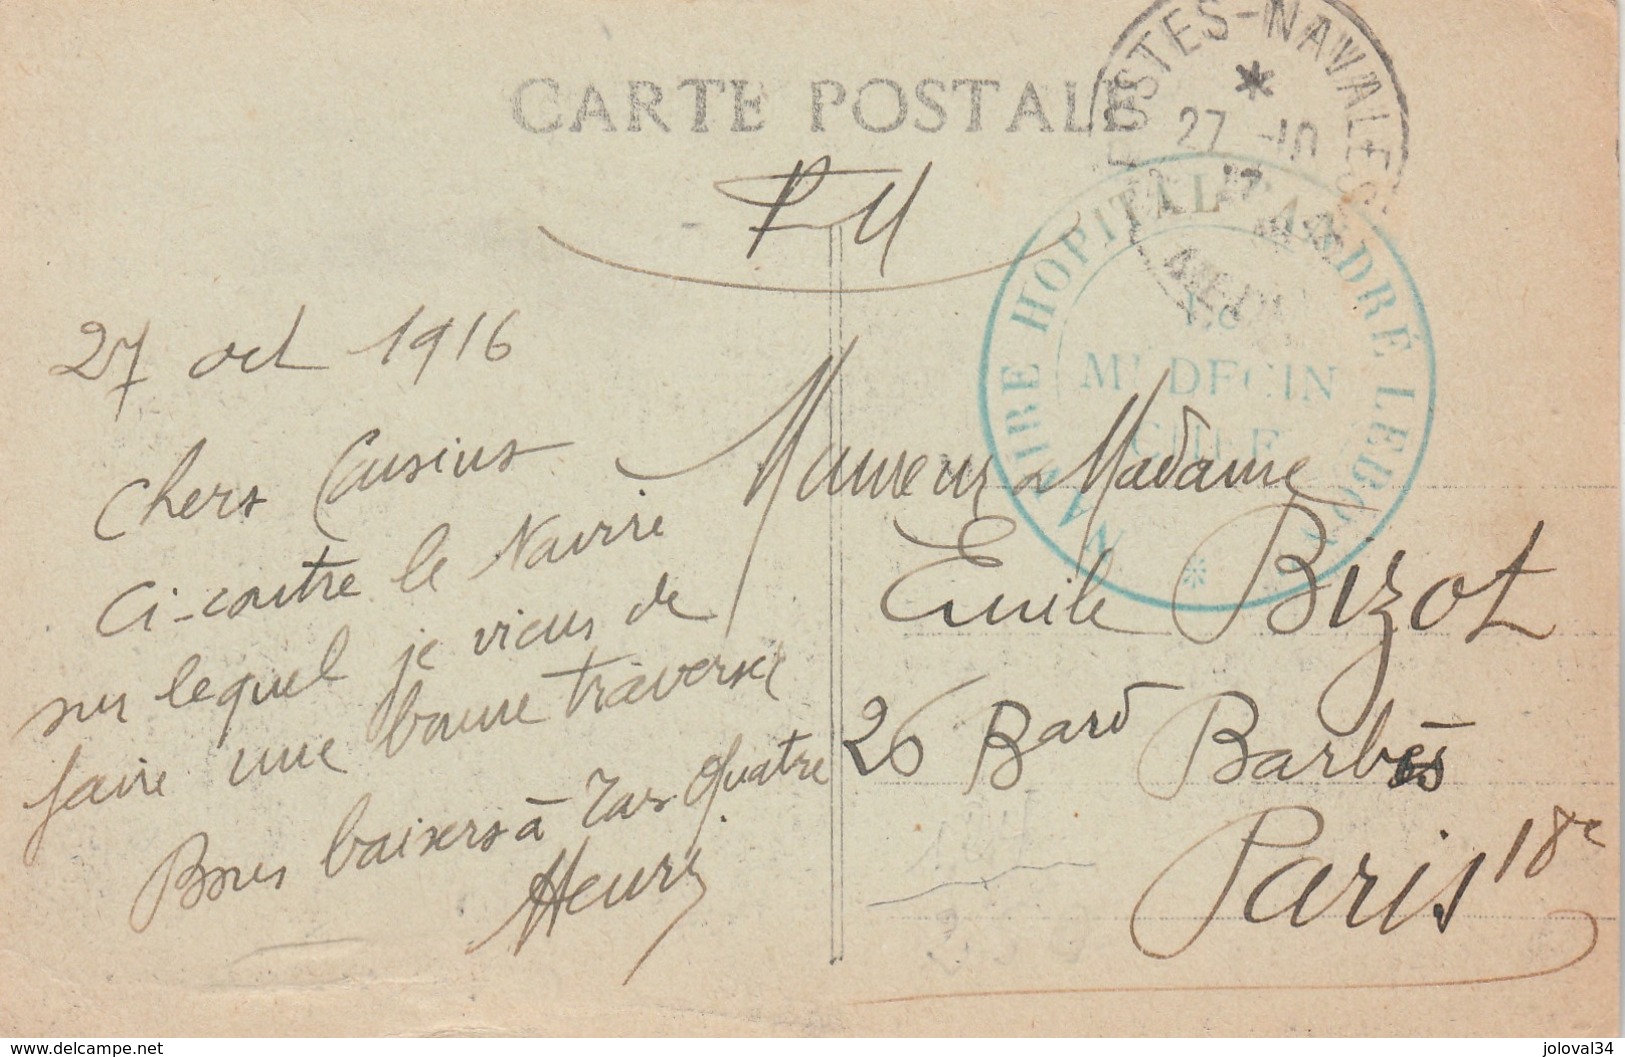 CARTE POSTALE
POSTES-NAVALES
*
27 -10
FM
NAVIRE HOPITAL ANDRÉ LEBON
Le
MÉDECIN
CHEF
*
27 oct 1916
Chers Cousins
Ci-contre le Navire
sur lequel je viens de
faire une bonne traversée
Bons baisers à tous quatre
Henry
Monsieur & Madame
Emile Bizot
26 Bard Barbès
Paris 18e
www.delcampe.net
joloval34